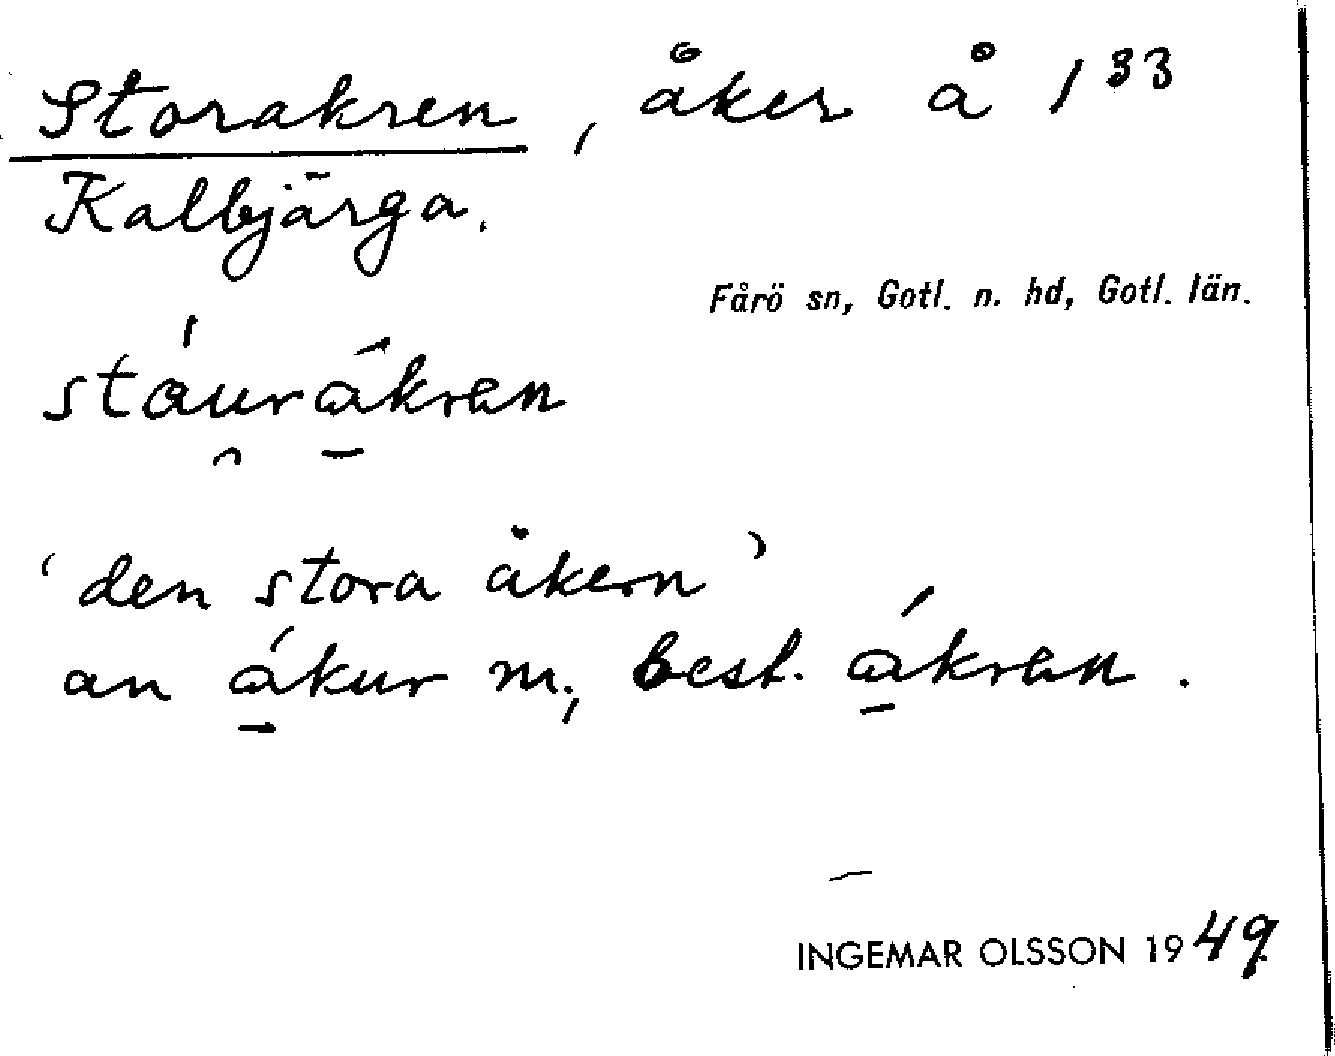 Storakren, åker å 1³³
Kalbjärga.
Fårö sn, Gotl. n. hd, Gotl. län.
stáu̯rá̱kran
‘den stora åkern’
an á̱kur m., best. á̱kran.
INGEMAR OLSSON 1949